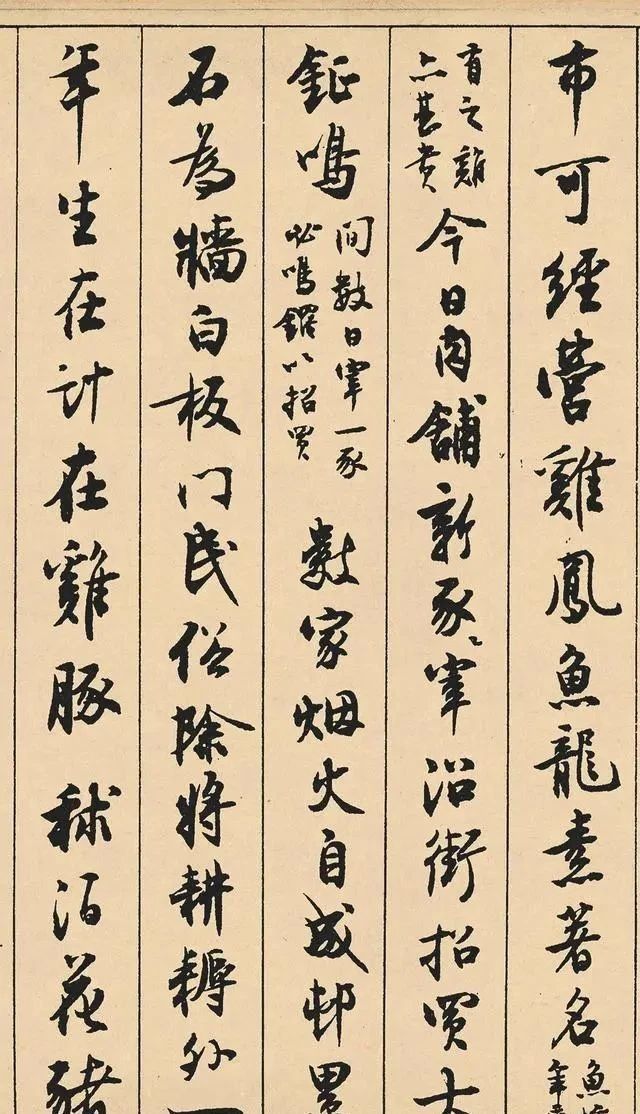 市可經營雞鳳魚龍素著名魚
有之雞
亦甚貴
今日肉舖新豕宰沿街招買大
鉦鳴
間數日宰一豕
必鳴鑼以招買
數家烟火自成邨
石為牆白板门民俗除將耕耨外一
年生在計在雞豚泊花豬